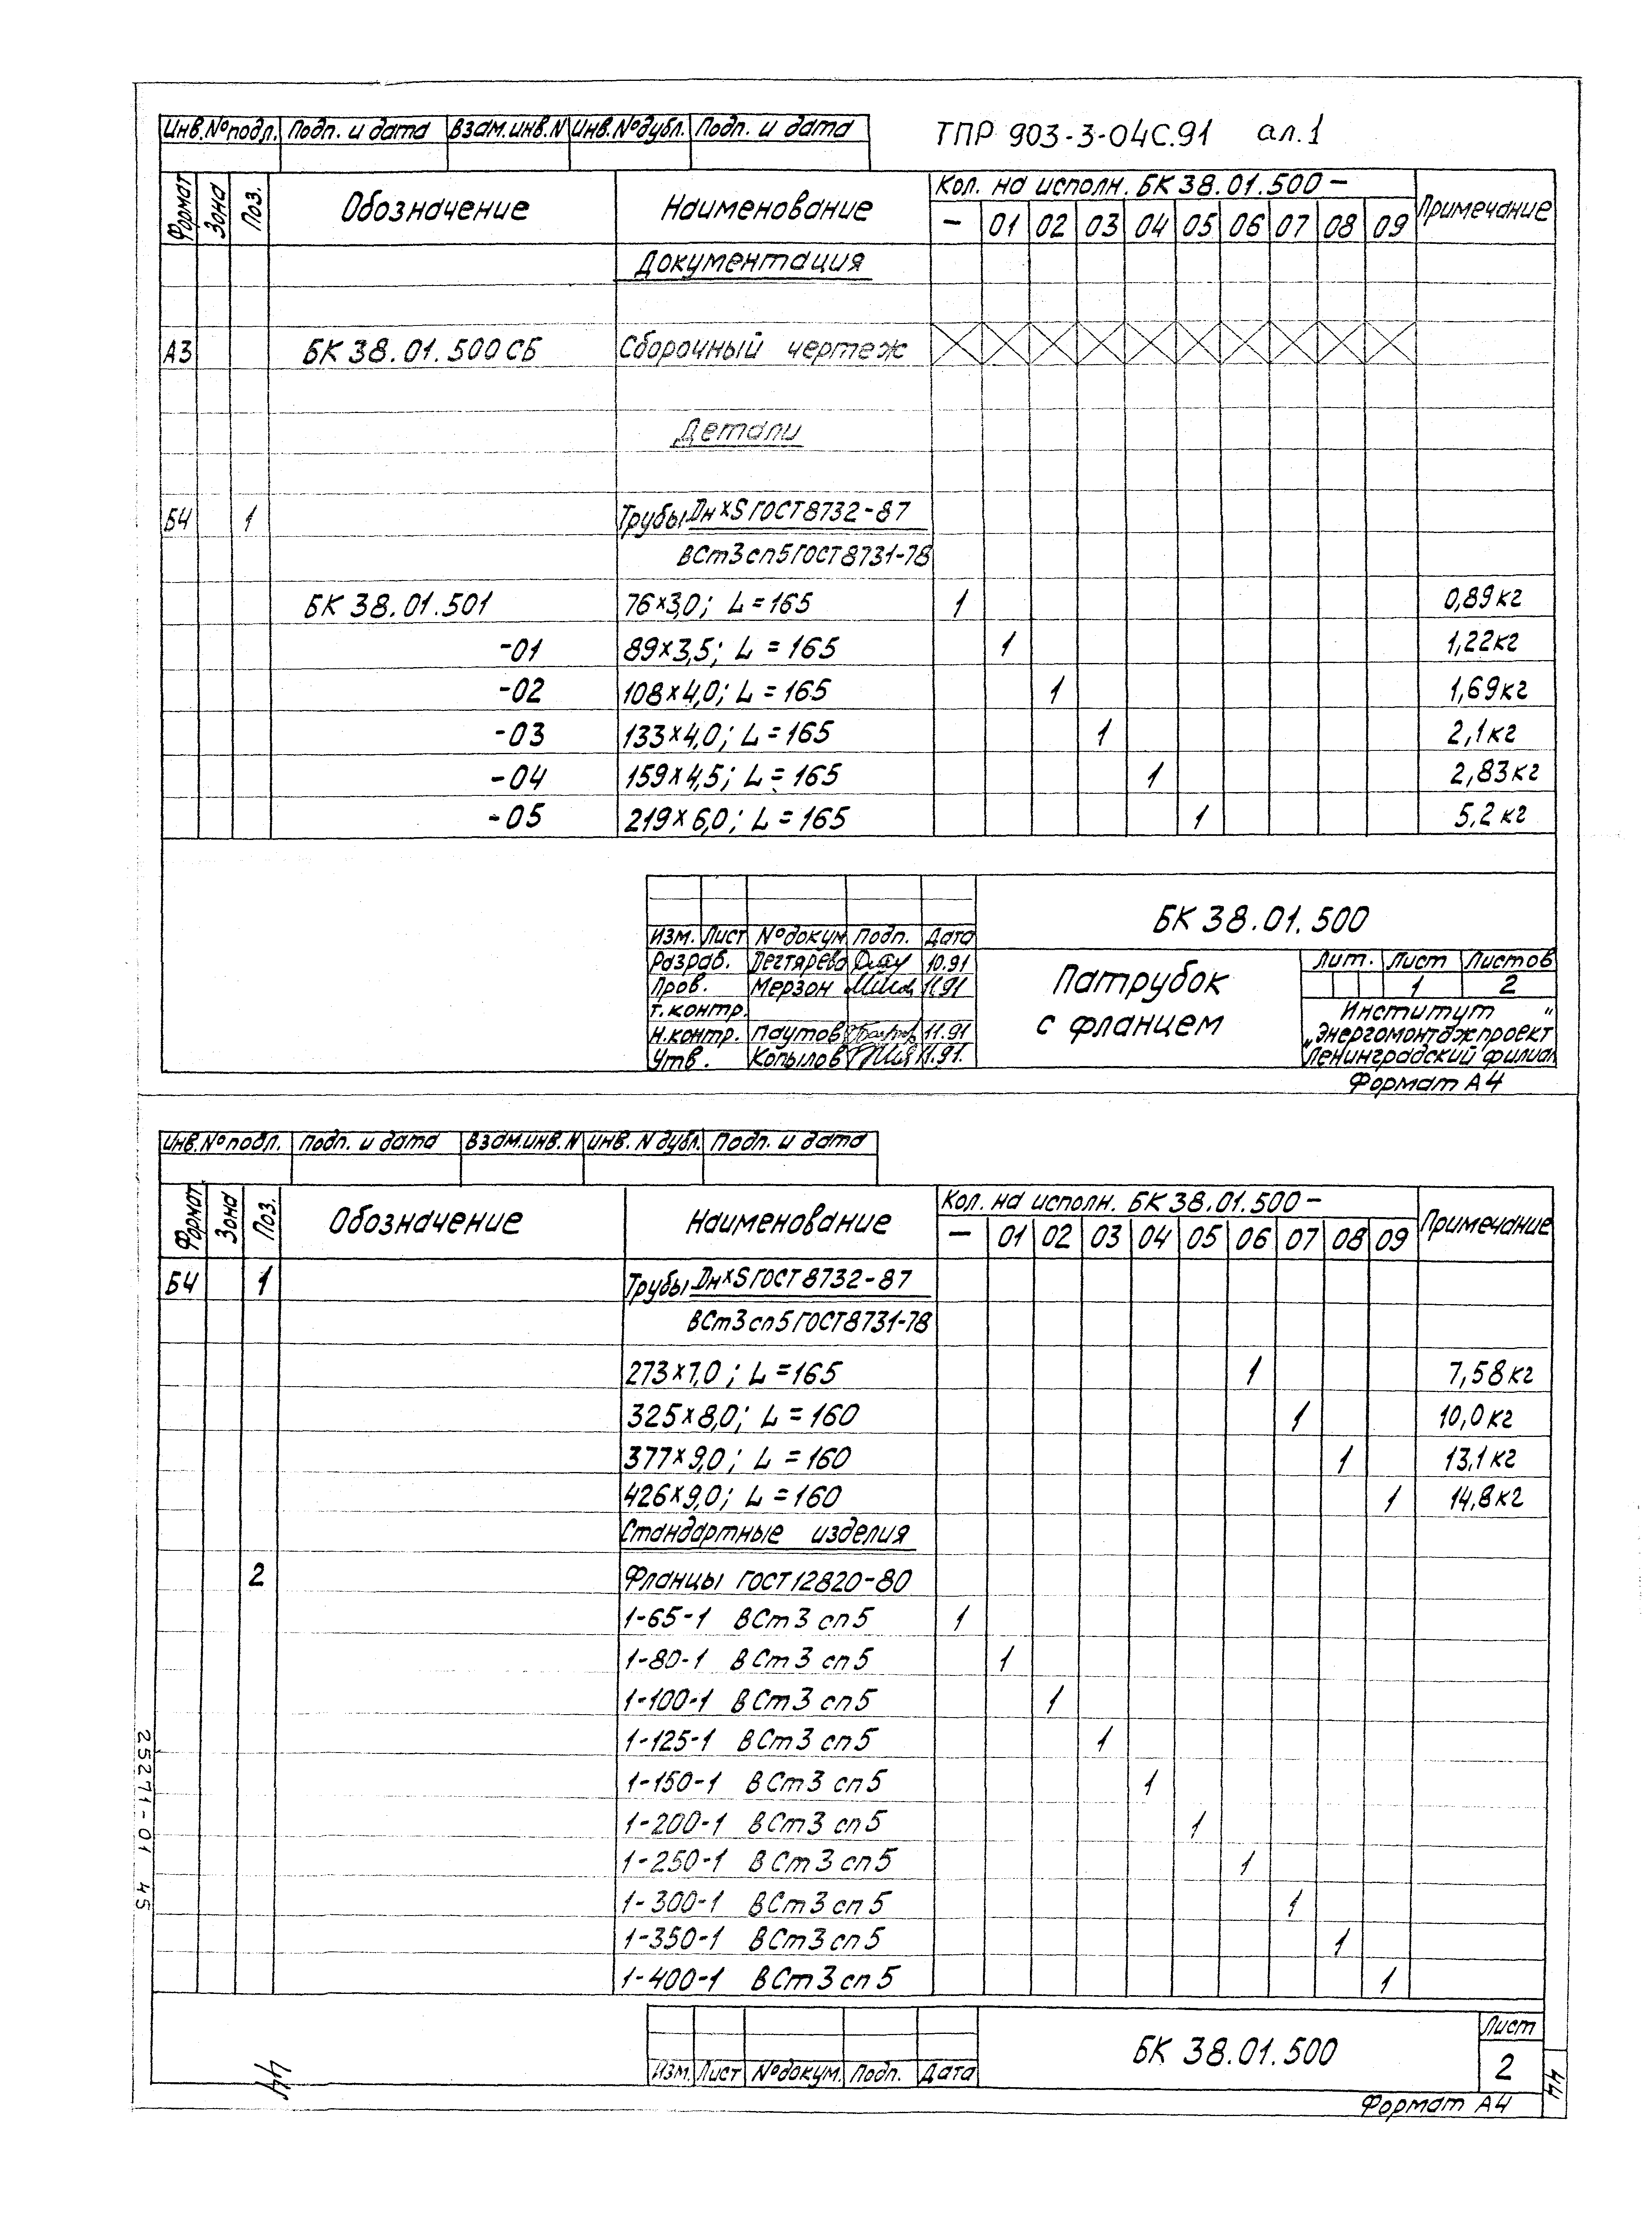 ТПР 903-3-04С.91 ал.1
Инв.№подл. Подп. и дата Взам.инв.N Инв.№дубл. Подп. и дата
Формат Зона Поз. Обозначение Наименование Кол. на исполн. БК 38.01.500 – Примечание
– 01 02 03 04 05 06 07 08 09
Документация
А3 БК 38.01.500 СБ Сборочный чертеж
Детали
Б4 1 Трубы Dн×S ГОСТ 8732-87
ВСт3сп5 ГОСТ 8731-78
БК 38.01.501 76×3,0; L=165 1 0,89кг
-01 89×3,5; L=165 1 1,22кг
-02 108×4,0; L=165 1 1,69кг
-03 133×4,0; L=165 1 2,1кг
-04 159×4,5; L=165 1 2,83кг
-05 219×6,0; L=165 1 5,2кг
Изм. Лист №докум Подп. Дата
Разраб. Дегтярева 10.91
Пров. Мерзон 11.91
Т.контр.
Н.контр. Паутов 11.91
Утв. Копылов 11.91.
БК 38.01.500
Патрубок
с фланцем
Лит. Лист Листов
1 2
Институт
„Энергомонтажпроект"
Ленинградский филиал
Формат А4
Инв.№подл. Подп. и дата Взам.инв.N Инв.N дубл. Подп. и дата
Формат Зона Поз. Обозначение Наименование Кол. на исполн. БК 38.01.500 – Примечание
– 01 02 03 04 05 06 07 08 09
Б4 1 Трубы Dн×S ГОСТ 8732-87
ВСт3сп5 ГОСТ 8731-78
273×7,0; L=165 1 7,58кг
325×8,0; L=160 1 10,0кг
377×9,0; L=160 1 13,1кг
426×9,0; L=160 1 14,8кг
Стандартные изделия
2 Фланцы ГОСТ 12820-80
1-65-1 ВСт3сп5 1
1-80-1 ВСт3сп5 1
1-100-1 ВСт3сп5 1
1-125-1 ВСт3сп5 1
1-150-1 ВСт3сп5 1
1-200-1 ВСт3сп5 1
1-250-1 ВСт3сп5 1
1-300-1 ВСт3сп5 1
1-350-1 ВСт3сп5 1
1-400-1 ВСт3сп5 1
Изм. Лист №докум. Подп. Дата
БК 38.01.500
Лист
2
Формат А4
25271-01 45
44
44